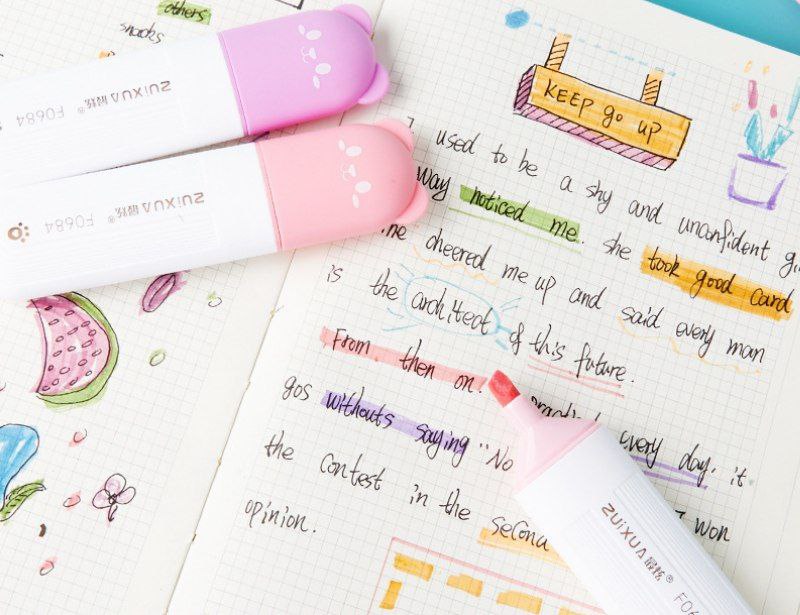 others
snacks
ZUiXUA最炫® F0684
ZUiXUA最炫® F0684
KEEP go up
I used to be a shy and unconfident gi
way noticed me. she took good card
he cheered me up and said every man
is the architect of this future.
From then on. practi every day. it
gos withouts saying "No I won
the contest in the second
opinion.
ZUiXUA最炫® F06